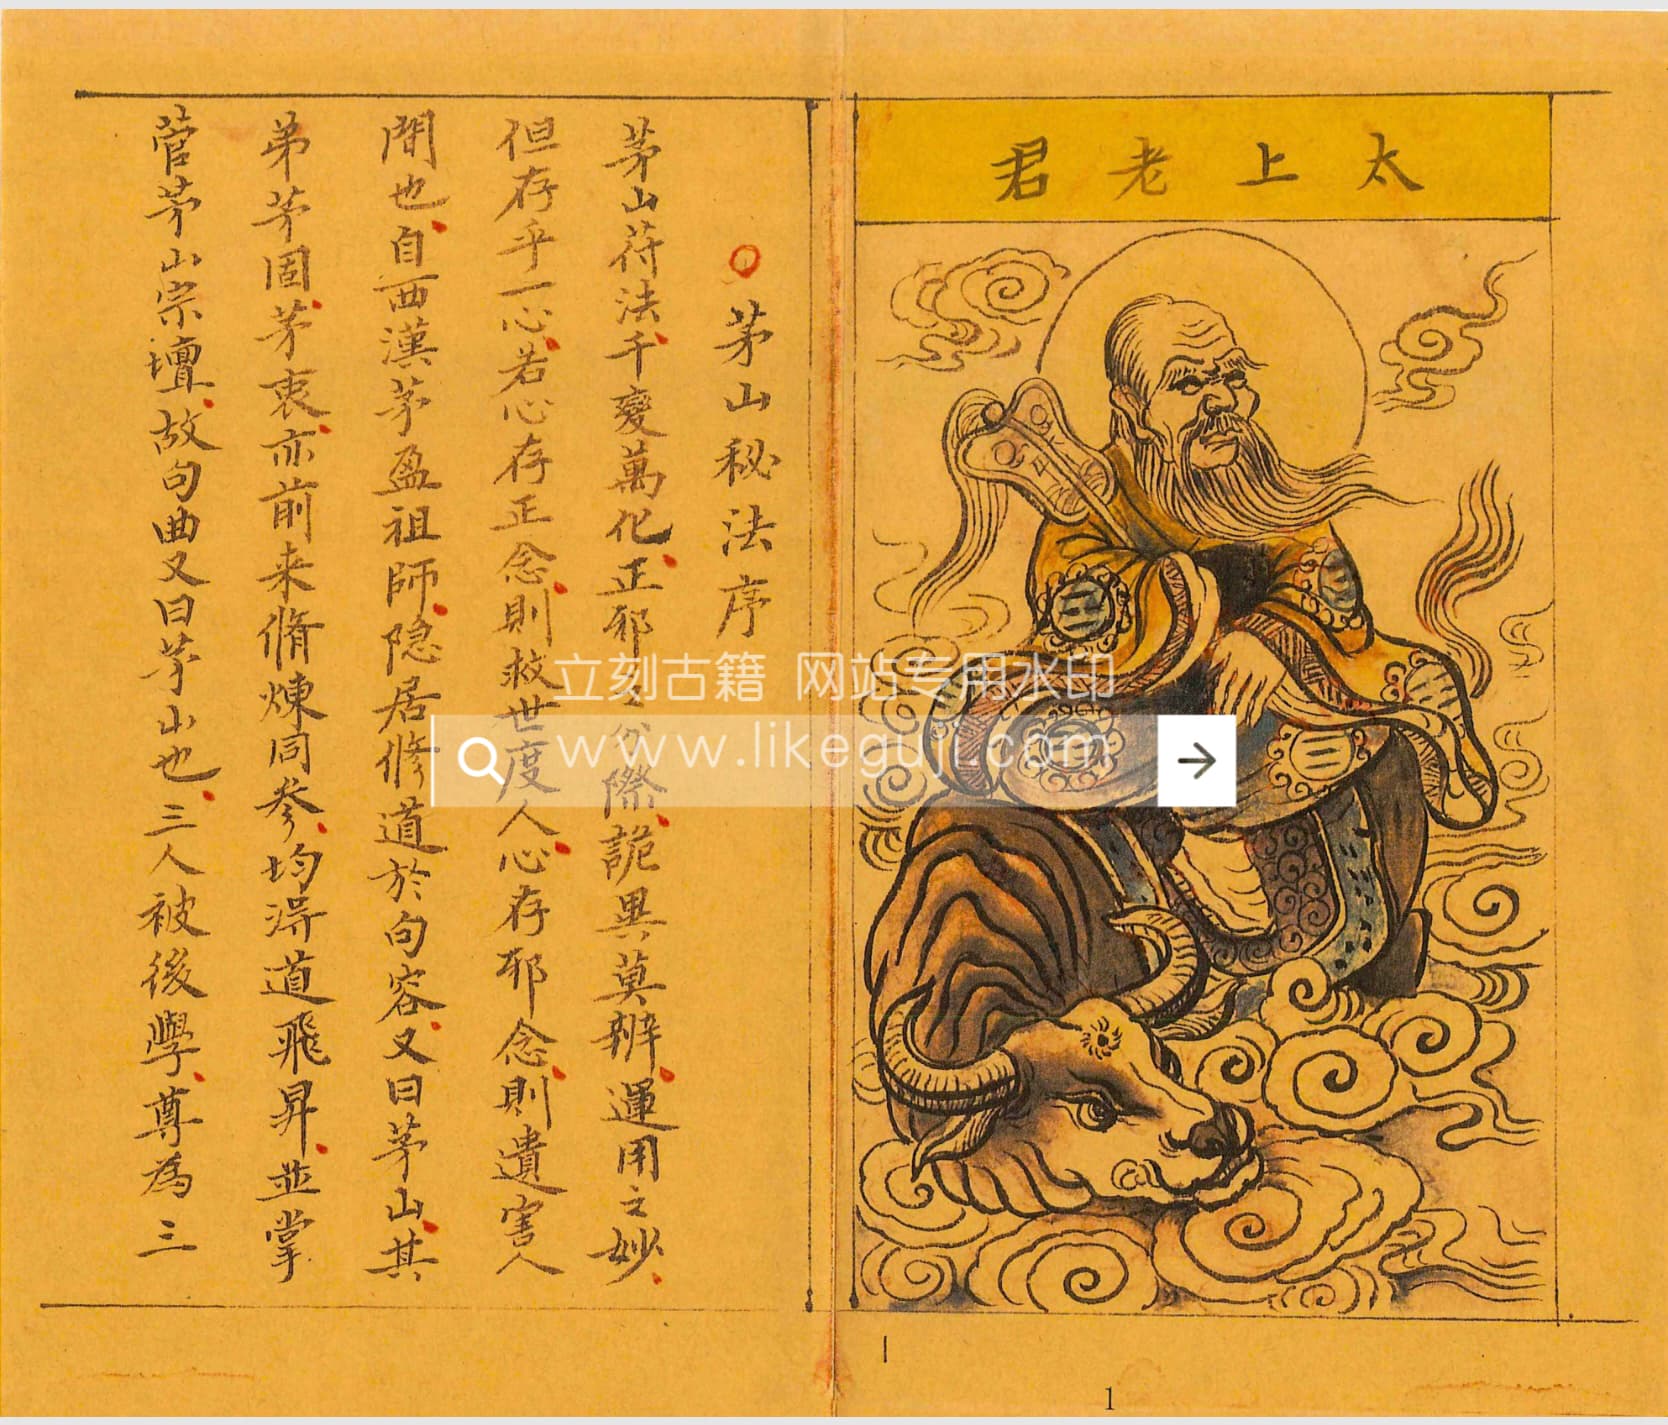 太上老君
○茅山秘法序
茅山符法千變萬化正邪之分際詭異莫辨運用之妙
但存乎一心若心存正念則救世度人心存邪念則遺害人
間也自西漢茅盈祖師隐居修道於句容又曰茅山其
弟茅固茅衷亦前来脩煉同參均淂道飛昇並掌
菅茅山宗壇故句曲又曰茅山也三人被後學尊為三
立刻古籍 网站专用水印
www.likeguji.com
1
1